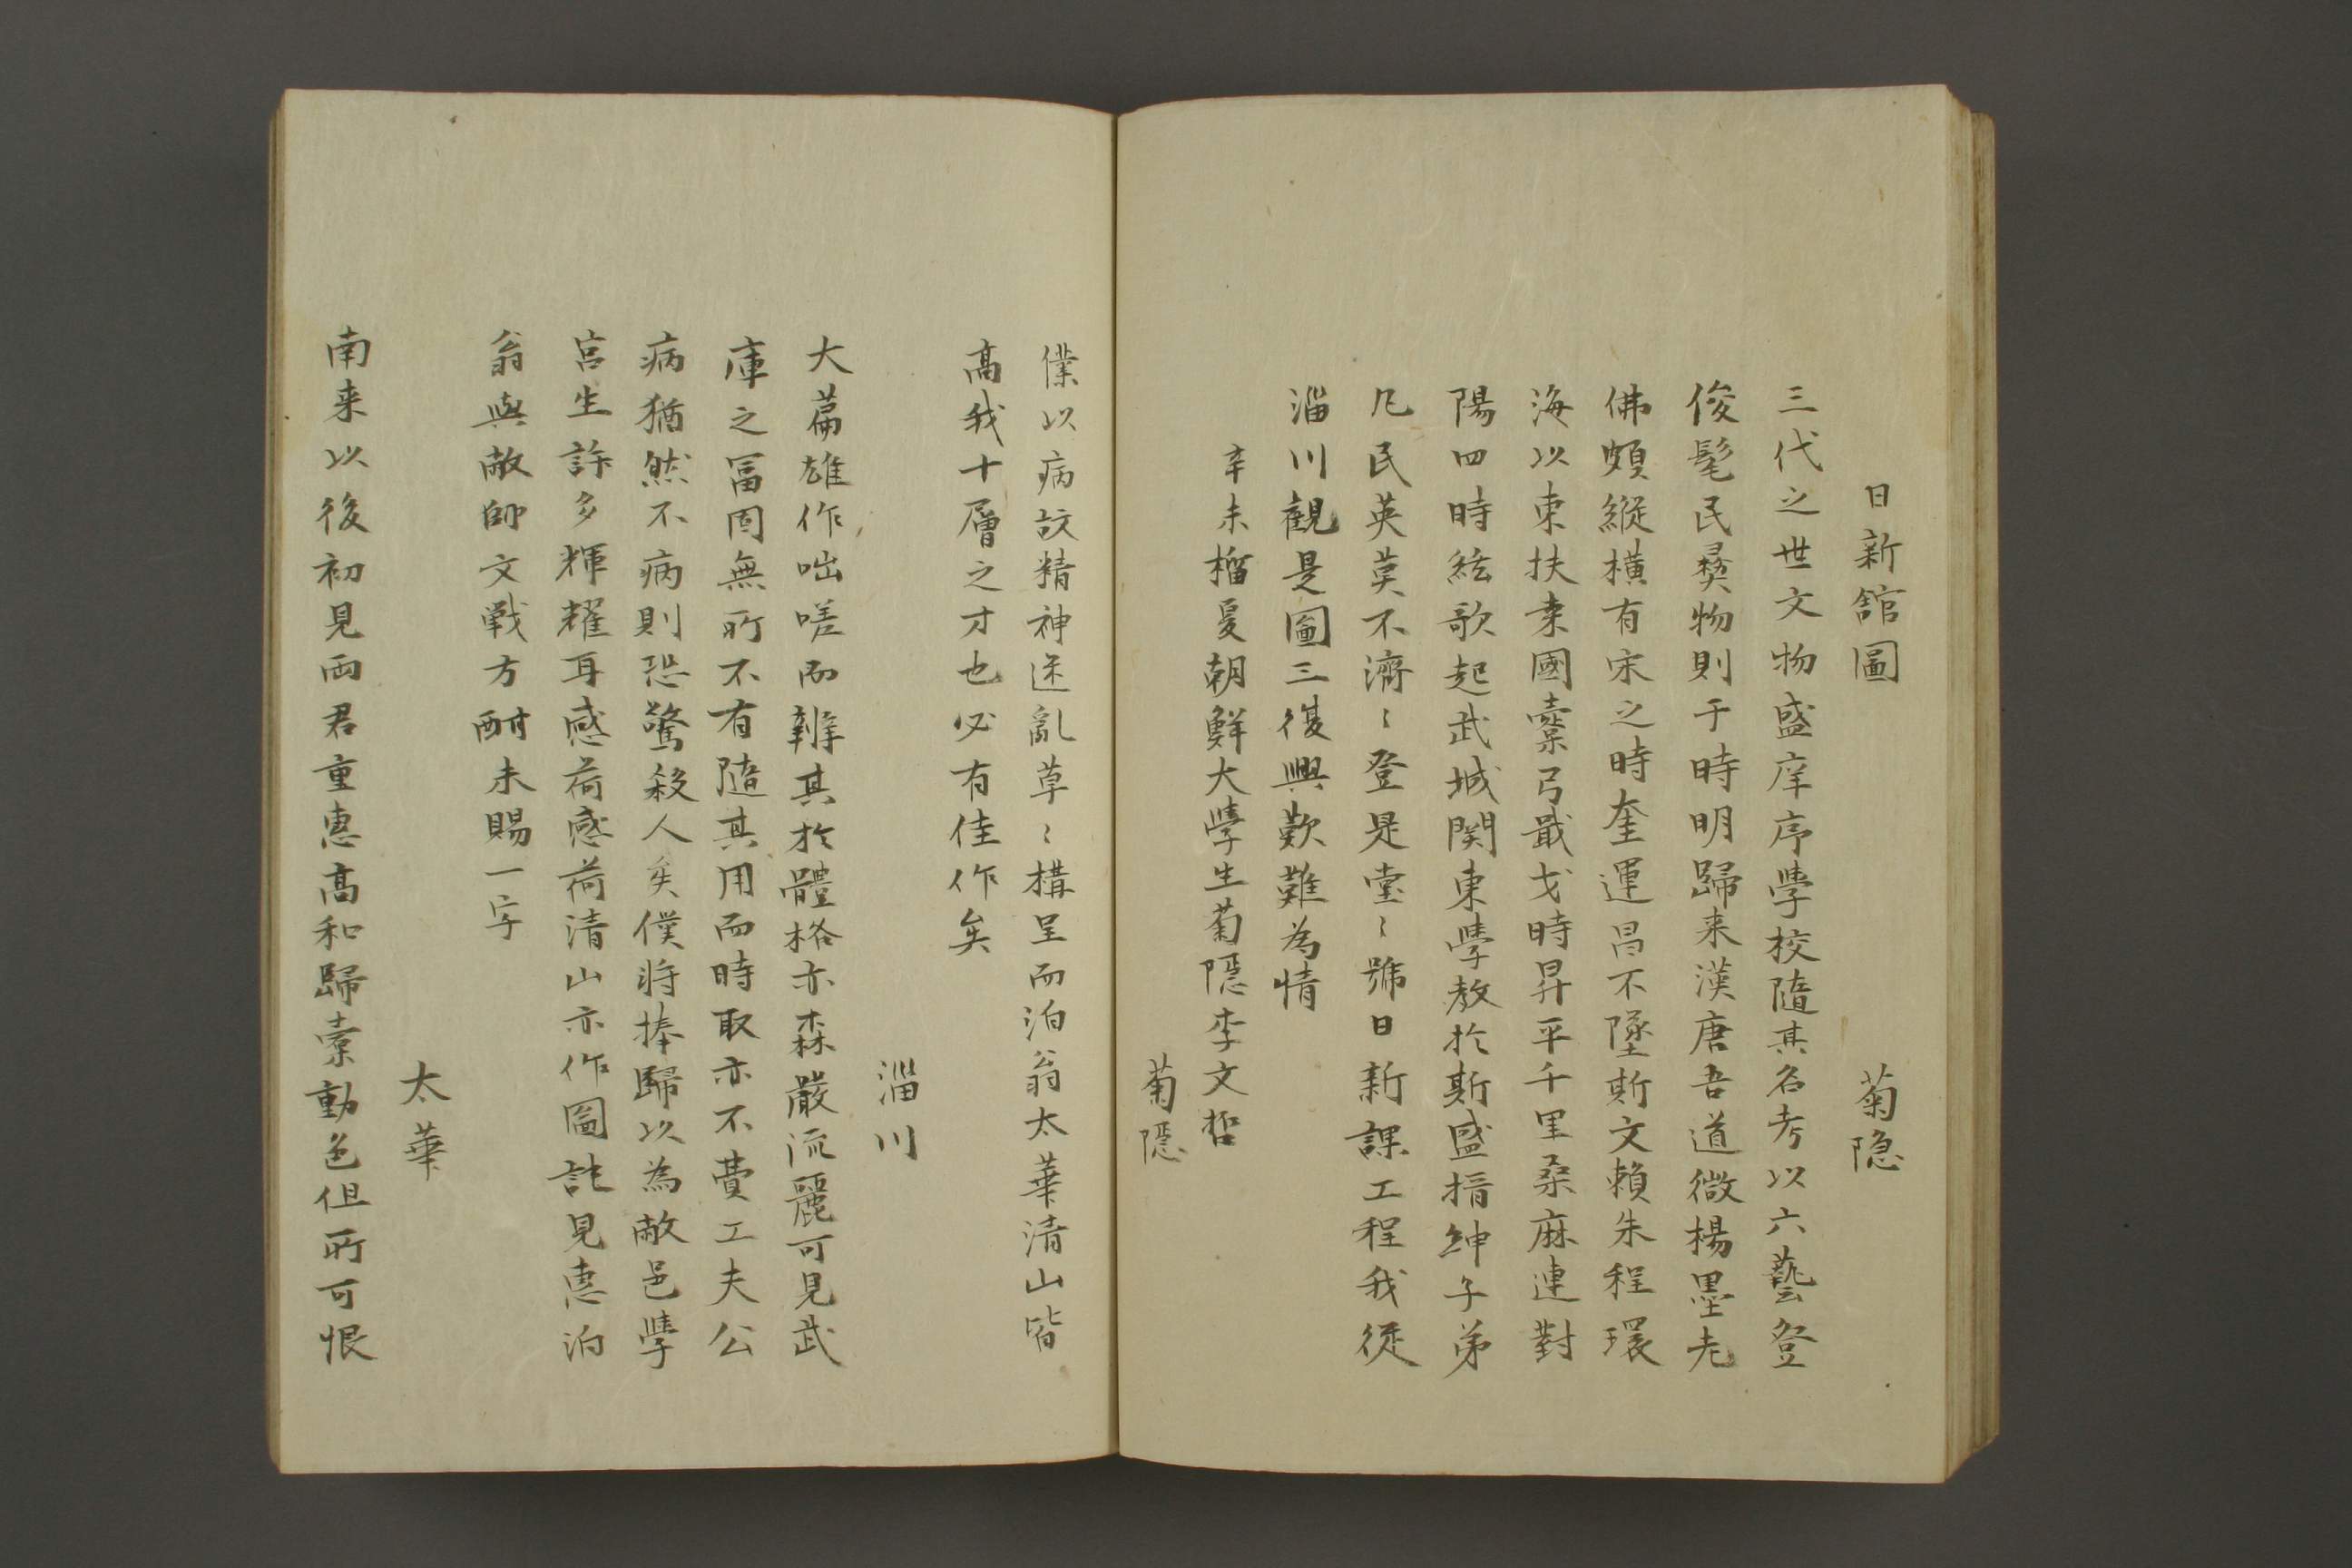 日新館圖　菊隐
三代之世文物盛庠序學校隨其名考以六藝登
俊髦民彝物則于時明歸来漢唐吾道微楊墨老
佛頗縱橫有宋之時奎運昌不墜斯文賴朱程環
海以東扶桒國櫜弓戢戈時昇平千里桑麻連對
陽四時絃歌起武城関東學教於斯盛搢紳子弟
凡民英莫不濟〻登是堂〻號日新課工程我從
淄川觀是圖三復興歎難為情
辛未榴夏朝鮮大學生菊隱李文哲
菊隱
僕以病故精神迷亂草〻構呈而泊翁太華清山皆
高我十層之才也必有佳作矣
淄川
大篇雄作咄嗟而辨其於體格亦森嚴流麗可見武
庫之冨固無所不有隨其用而時取亦不費工夫公
病猶然不病則恐驚殺人矣僕将捧歸以為敝邑學
宮生許多輝耀耳感荷感荷清山亦作圖記見惠泊
翁與敝師文戰方酣未賜一字
太華
南来以後初見両君重惠髙和歸槖動色但所可恨